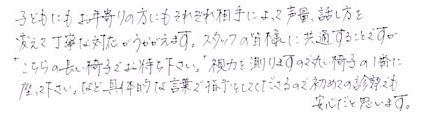 子どもにもお年寄りの方にもそれぞれ相手によって声量、話し方を
変えて丁寧な対応がうかがえます。スタッフの皆様に共通することですが
「こちらの長い椅子でお待ち下さい。」「視力を測りますので丸い椅子の1番に
座って下さい。」など具体的な言葉で指示をしてくださるので初めての診察でも
安心だと思います。